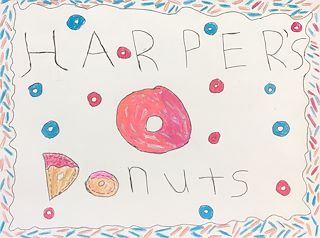 HARPER'S
Donuts